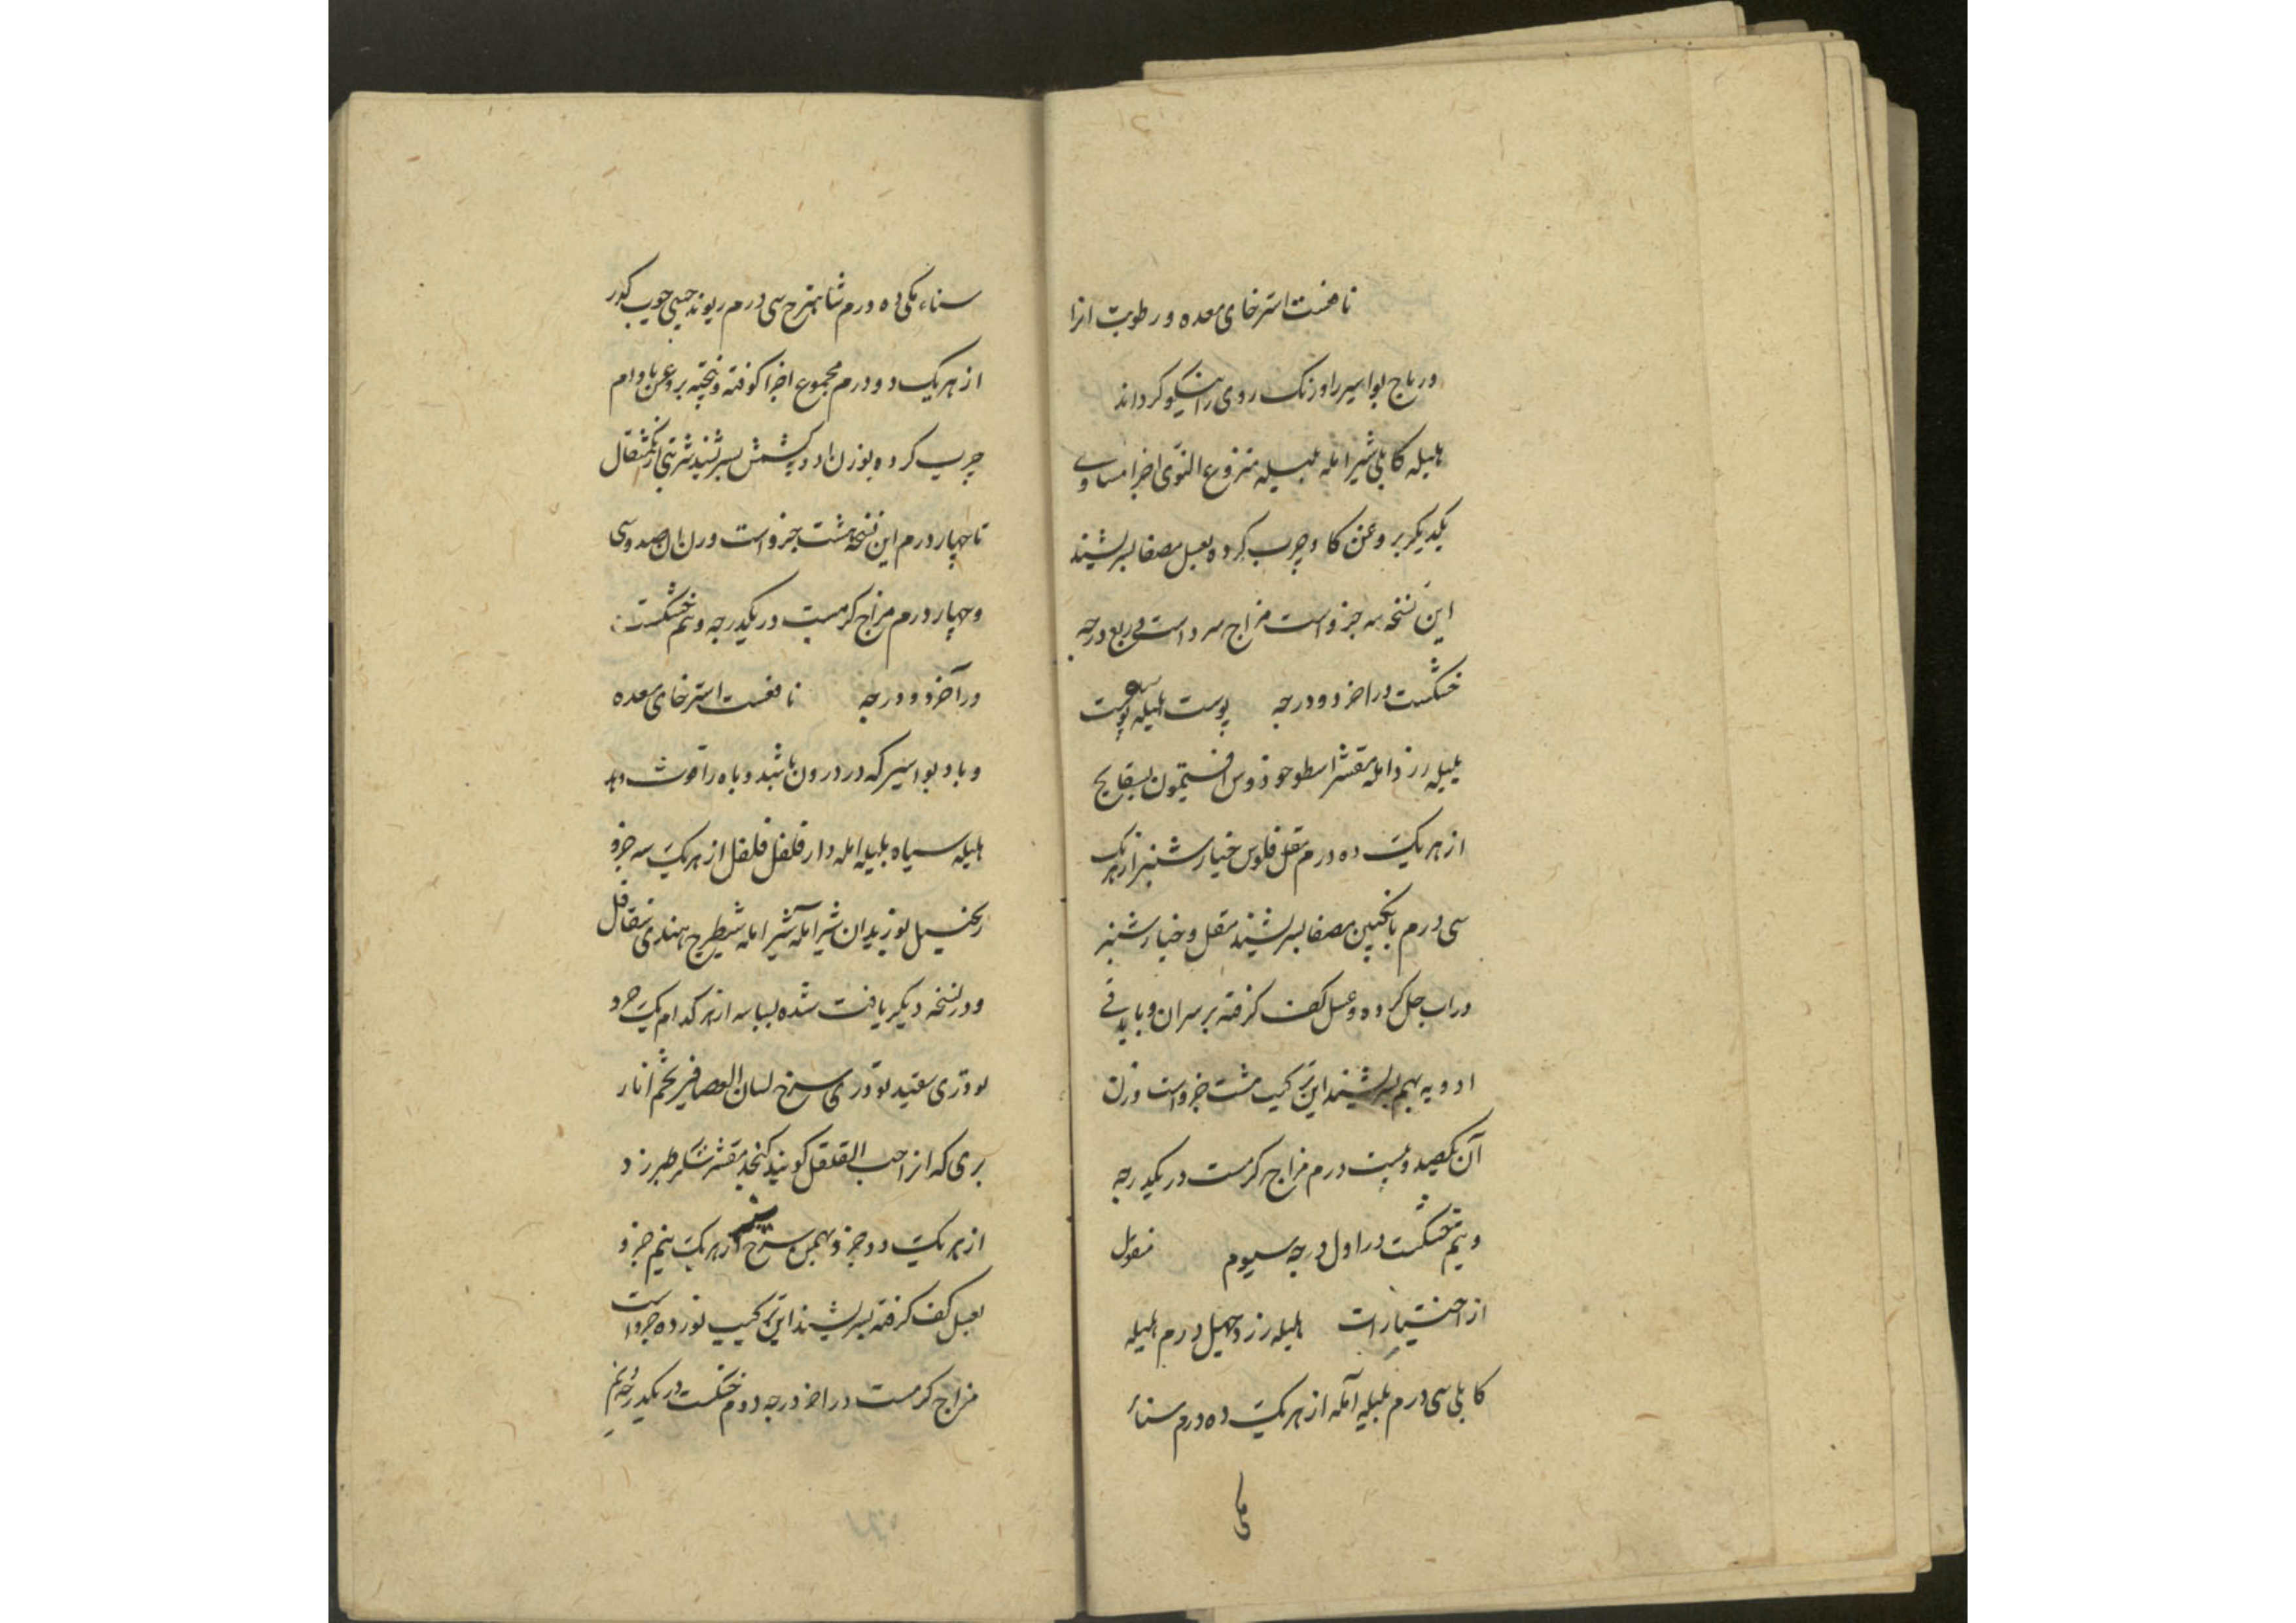 نافعست استرخای معده و رطوبت انرا
و ریاح بواسیر را و رنک روی را نیکو کرداند
هلیله کابلی شیر امله بلیله منزوع النوی اجزا مساوی
یکدیکر بروغن کاو چرب کرده بعسل مصفا بسرشند
این نسخه سه جزو است مزاج سرد است در ربع درجه
خشکست در اخر دو درجه پوست هلیله پوست
بلیله زرد امله مقشر اسطوخودوس افتیمون بسفایج
از هر یک ده درم مقل فلوس خیارشنبر از هر یک
سی درم بانکبین مصفا بسرشند مقل و خیارشنبر
در اب حل کرده و عسل کف کرفته بر سر ان و با باقی
ادویه بهم بسرشند این ترکیب هشت جزو است وزن
آن یکصد و بیست درم مزاج کرمست در یکدرجه
و نیم خشکست در اول درجه سیوم منقول
از اختیارات هلیله زرد چهل درم هلیله
کابلی سی درم بلیله آمله از هر یک ده درم سناء
مکی
سناء مکی ده درم شاهترج سی درم ریوند چینی چوب کور
از هر یک دو درم مجموع اجزا کوفته و بیخته بروغن بادام
چرب کرده بوزن ادویه کشمش بسرشند شربتی از یکمثقال
تا چهار درم این نسخه هشت جزو است وزن ان صد و سی
و چهار درم مزاج کرمست در یکدرجه و نیم خشکست
در آخر دو درجه نافعست استرخای معده
و باد بواسیر که در درون باشد و باه را قوت دهد
هلیله سیاه بلیله امله دارفلفل فلفل از هر یک سه جزو
زنجبیل بوزیدان شیر امله شیر امله شیطرج هندی شقاقل
و در نسخه دیکر یافت شده بسباسه از هر کدام یک جزو
تودری سفید تودری سرخ لسان العصافیر تخم انار
بری که انرا حب القلقل کویند کنجد مقشر شکر طبرزد
از هر یک دو جزو بهمن سرخ سفید از هر یک نیم جزو
بعسل کف کرفته بسرشند این ترکیب نوزده جزو است
مزاج کرمست در اخر درجه دوم خشکست در یکدرجه و نیم